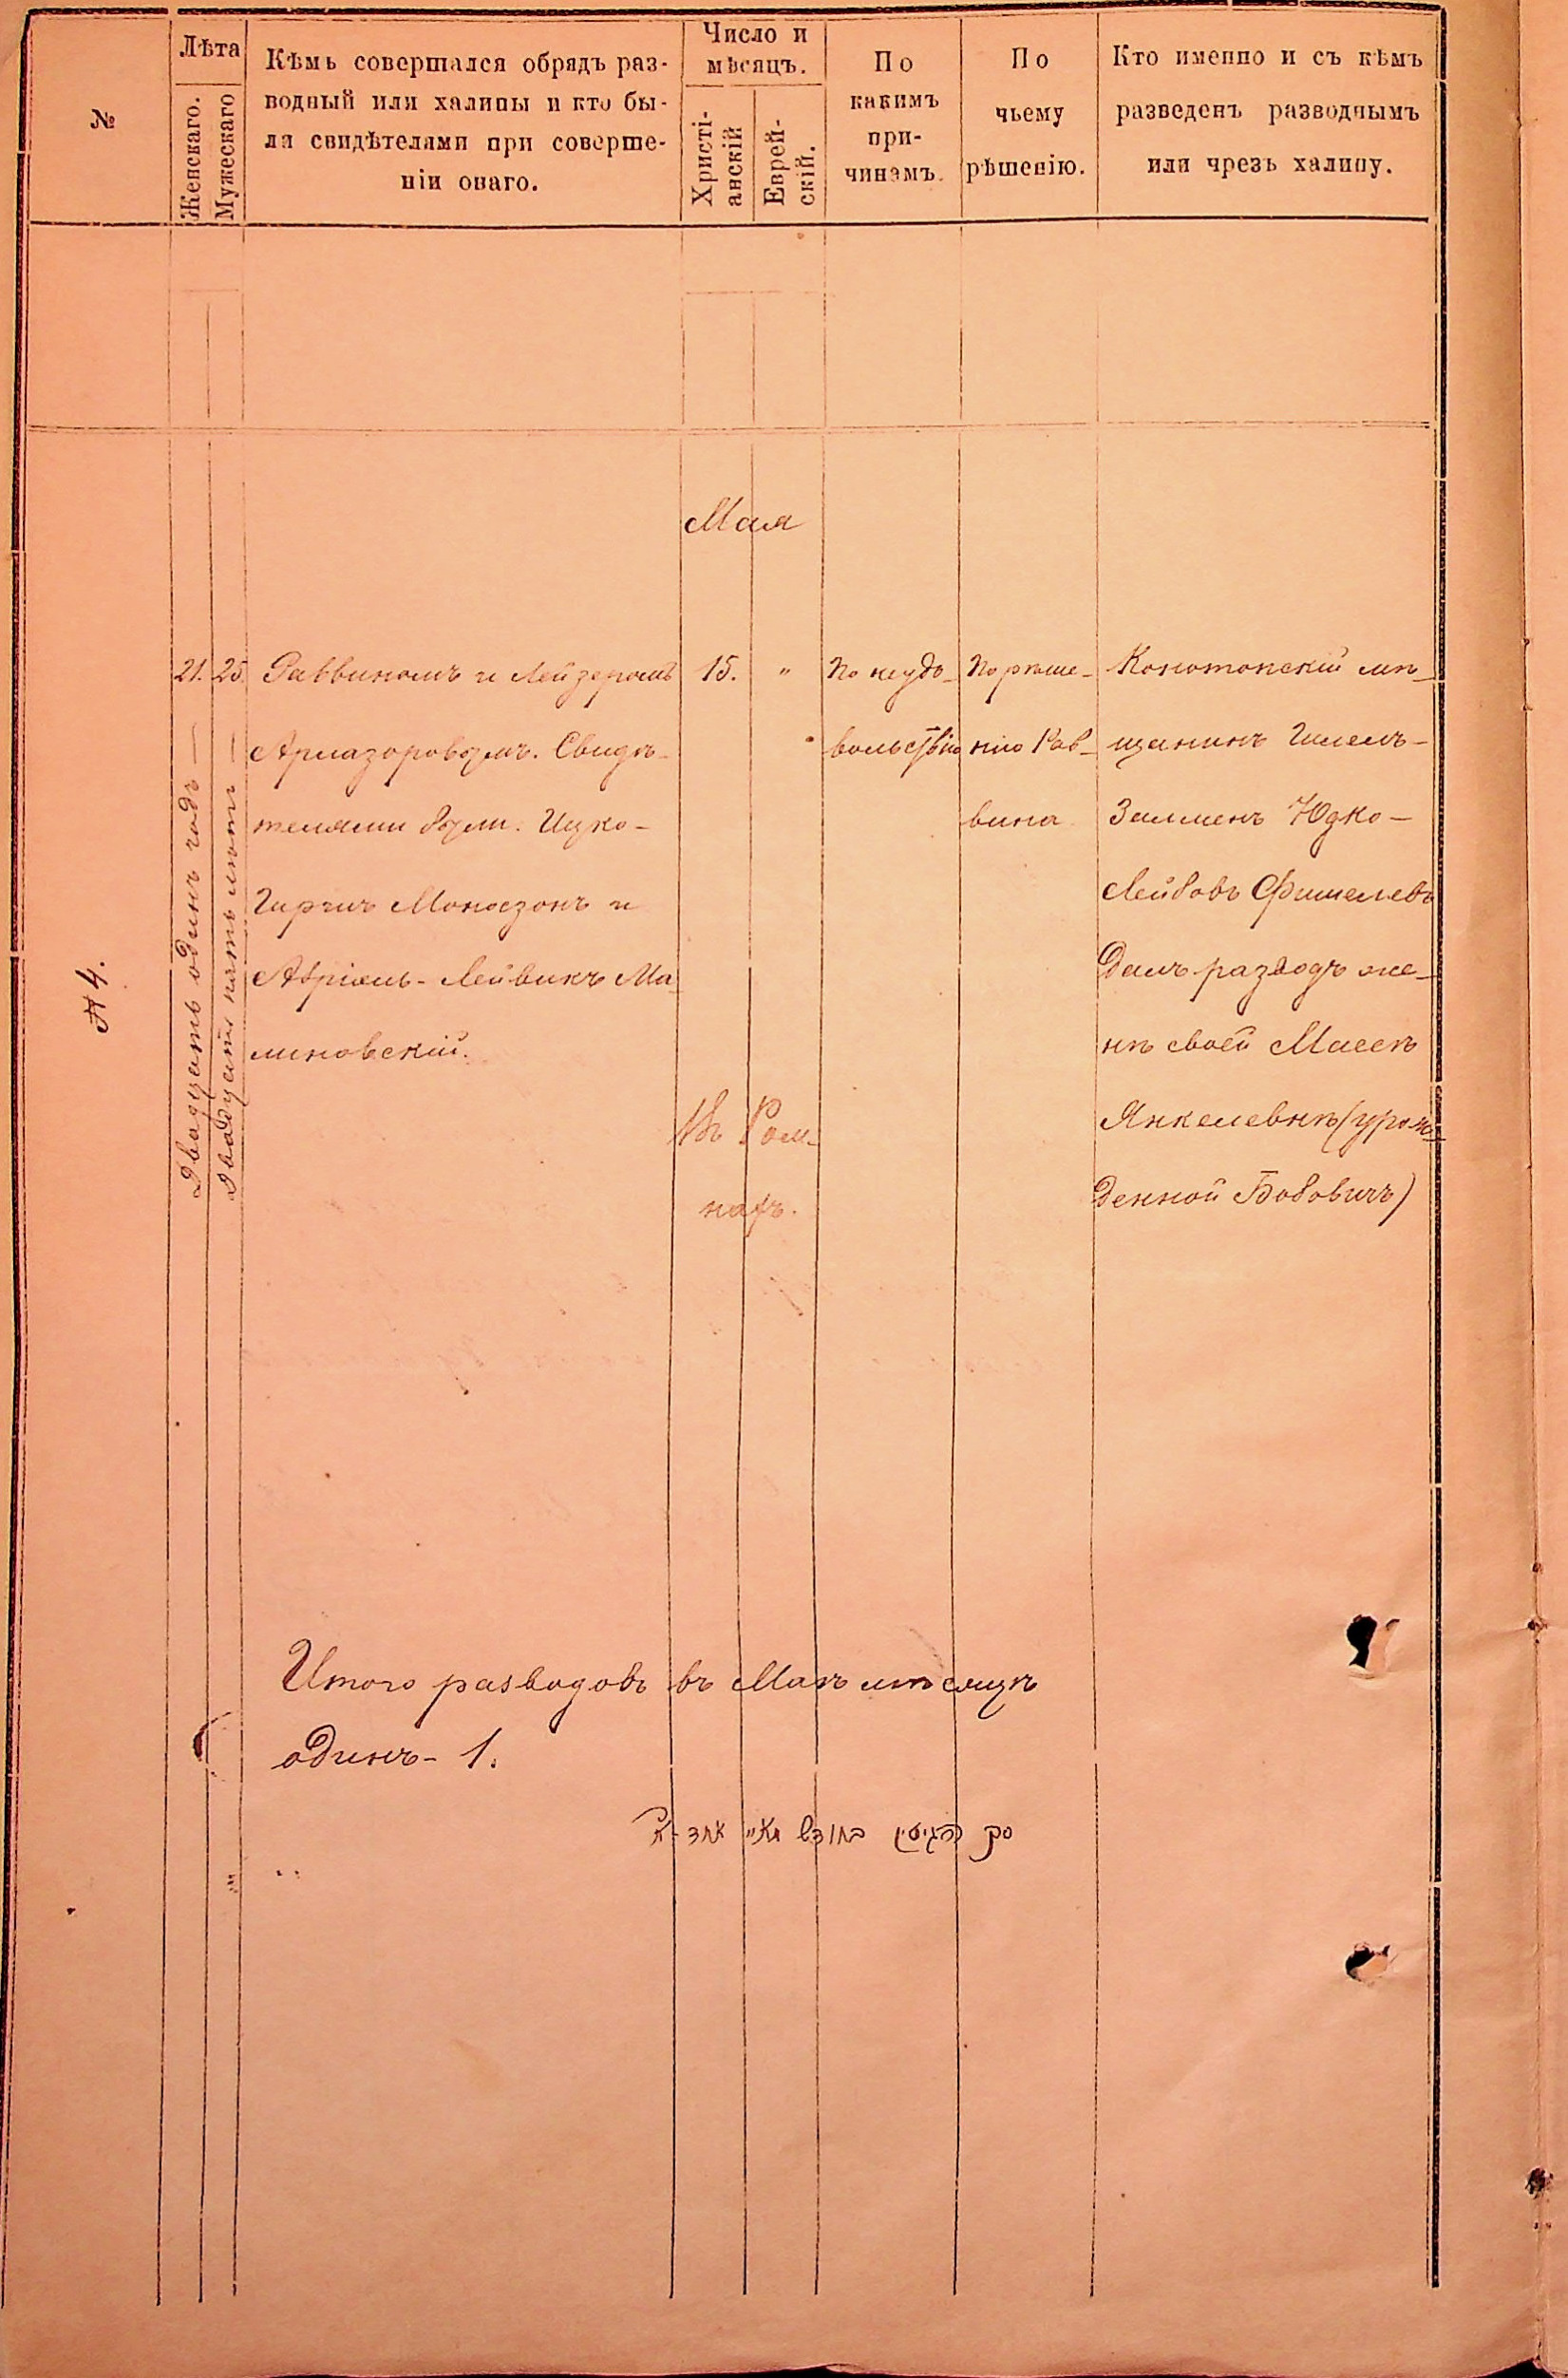 №
Лѣта
Женскаго.
Мужескаго
Кѣмъ совершался обрядъ раз-
водный или халицы и кто бы-
ли свидѣтелями при соверше-
ніи онаго.
Число и
мѣсяцъ.
Христі-
анскій
Еврей-
скій.
По
какимъ
при-
чинамъ.
По
чьему
рѣшенію.
Кто именно и съ кѣмъ
разведенъ разводнымъ
или чрезъ халицу.
Мая
№ 4.
21.
Двадцать одинъ годъ —
25
Двадцать пять лѣтъ —
Раввиномъ и Лейзеромъ
Свидѣ-
телями были: Ицко-
Гиршъ Моносзонъ и
Лейвикъ Ма-
линовскій.
15.
"
Въ Ром-
нахъ.
По неудо-
вольствію
По рѣше-
нію Рав-
вина
Конотопскій мѣ-
щанинъ Шлемъ-
Залменъ Юдко-
Лейбовъ Фишелевъ
Далъ разводъ же-
нѣ своей Масеѣ
Янкелевнѣ (урож-
денной Бобовичъ)
Итого разводовъ въ Маѣ мѣсяцѣ
одинъ - 1.
סך הגיטין בחודש מאיי אחד - א'